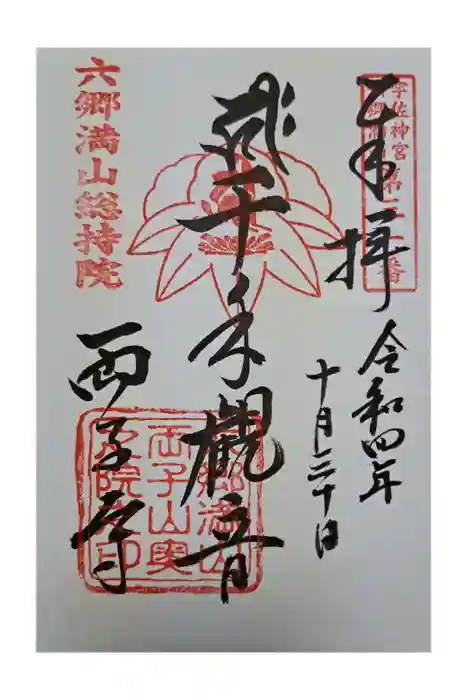 奉拝
宇佐神宮
令和四年
十月三十日
千手觀音
六郷満山総持院
両子寺
六郷満山
両子山奥
之院之印